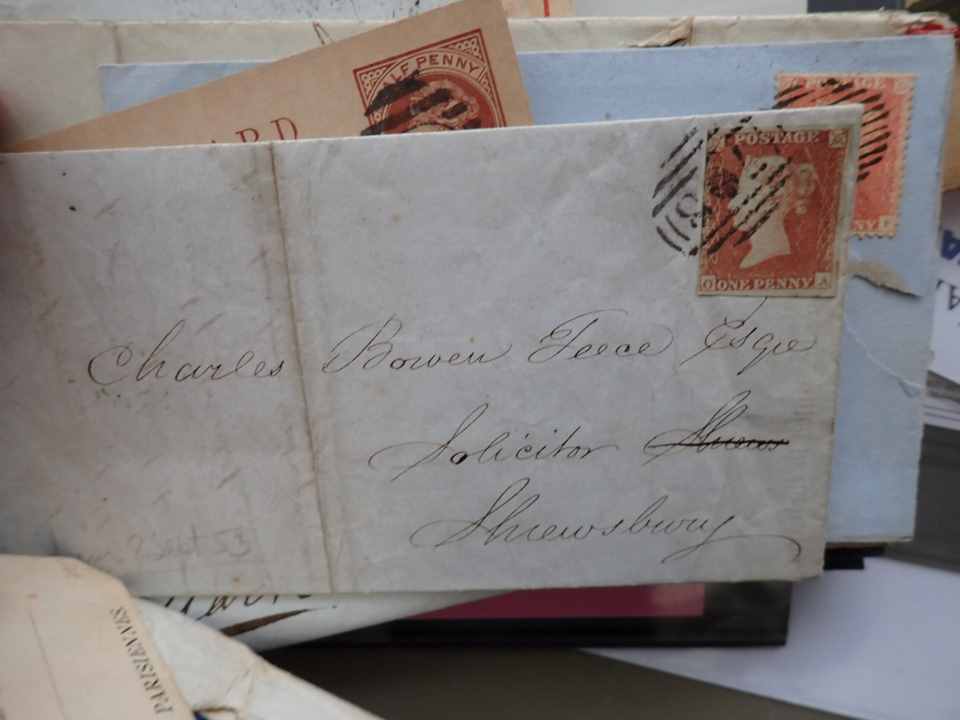 HALF PENNY
ARD
POSTAGE
ONE PENNY
POSTAGE
NNY
Charles Bowen Teece Esqre
Solicitor
Shrewsbury
2 Sept 53
PARISIENNES